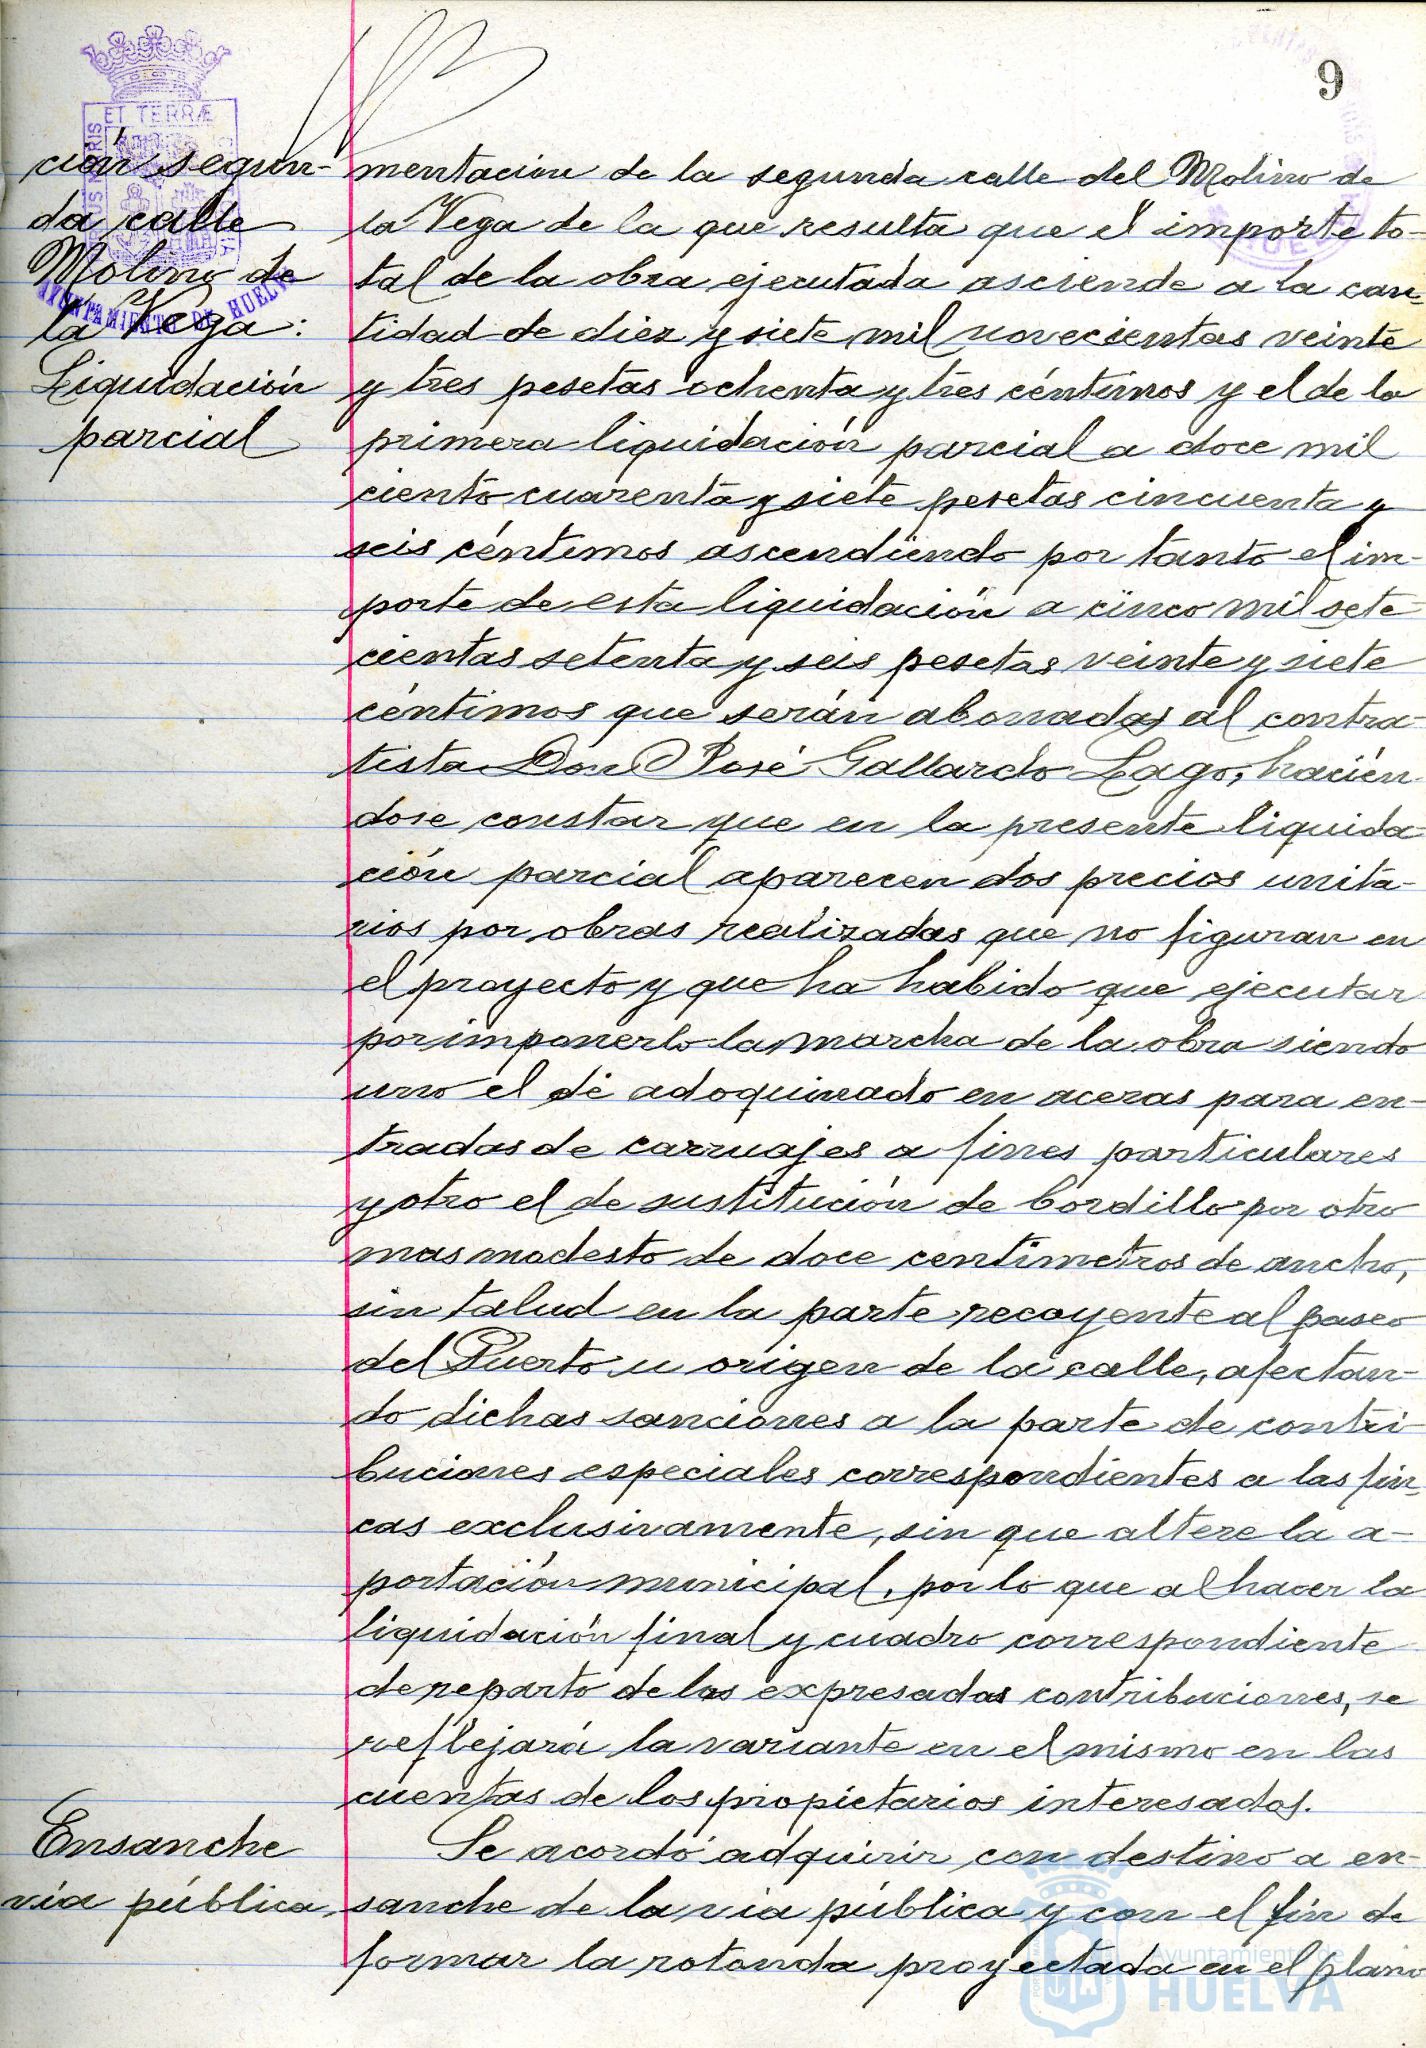 9
ET TERRÆ
AYUNTAMIENTO DE HUELVA
ción segun-
da calle
Molino de
la Vega:
Liquidación
parcial
mentación de la segunda calle del Molino de
la Vega de la que resulta que el importe to-
tal de la obra ejecutada asciende a la can-
tidad de diez y siete mil novecientas veinte
y tres pesetas ochenta y tres céntimos y el de la
primera liquidación parcial a doce mil
ciento cuarenta y siete pesetas cincuenta y
seis céntimos ascendiendo por tanto el im-
porte de esta liquidación a cinco mil sete
cientas setenta y seis pesetas veinte y siete
céntimos que serán abonadas al contra-
tista Don José Gallardo Lago, hacién
dose constar que en la presente liquida
ción parcial aparecen dos precios unita-
rios por obras realizadas que no figuran en
el proyecto y que ha habido que ejecutar
por imponerlo la marcha de la obra siendo
uno el de adoquinado en aceras para en-
tradas de carruajes a fines particulares
y otro el de sustitución de bordillo por otro
mas modesto de doce centimetros de ancho,
sin talud en la parte recayente al paseo
del Puerto u origen de la calle, afectan-
do dichas sanciones a la parte de contri-
buciones especiales correspondientes a las fin-
cas exclusivamente, sin que altere la a-
portación municipal, por lo que al hacer la
liquidación final y cuadro correspondiente
de reparto de las expresadas contribuciones, se
reflejará la variante en el mismo en las
cuentas de los propietarios interesados.
Ensanche
via pública
Se acordó adquirir con destino a en-
sanche de la via pública y con el fin de
formar la rotonda proyectada en el plano
Ayuntamiento de
HUELVA